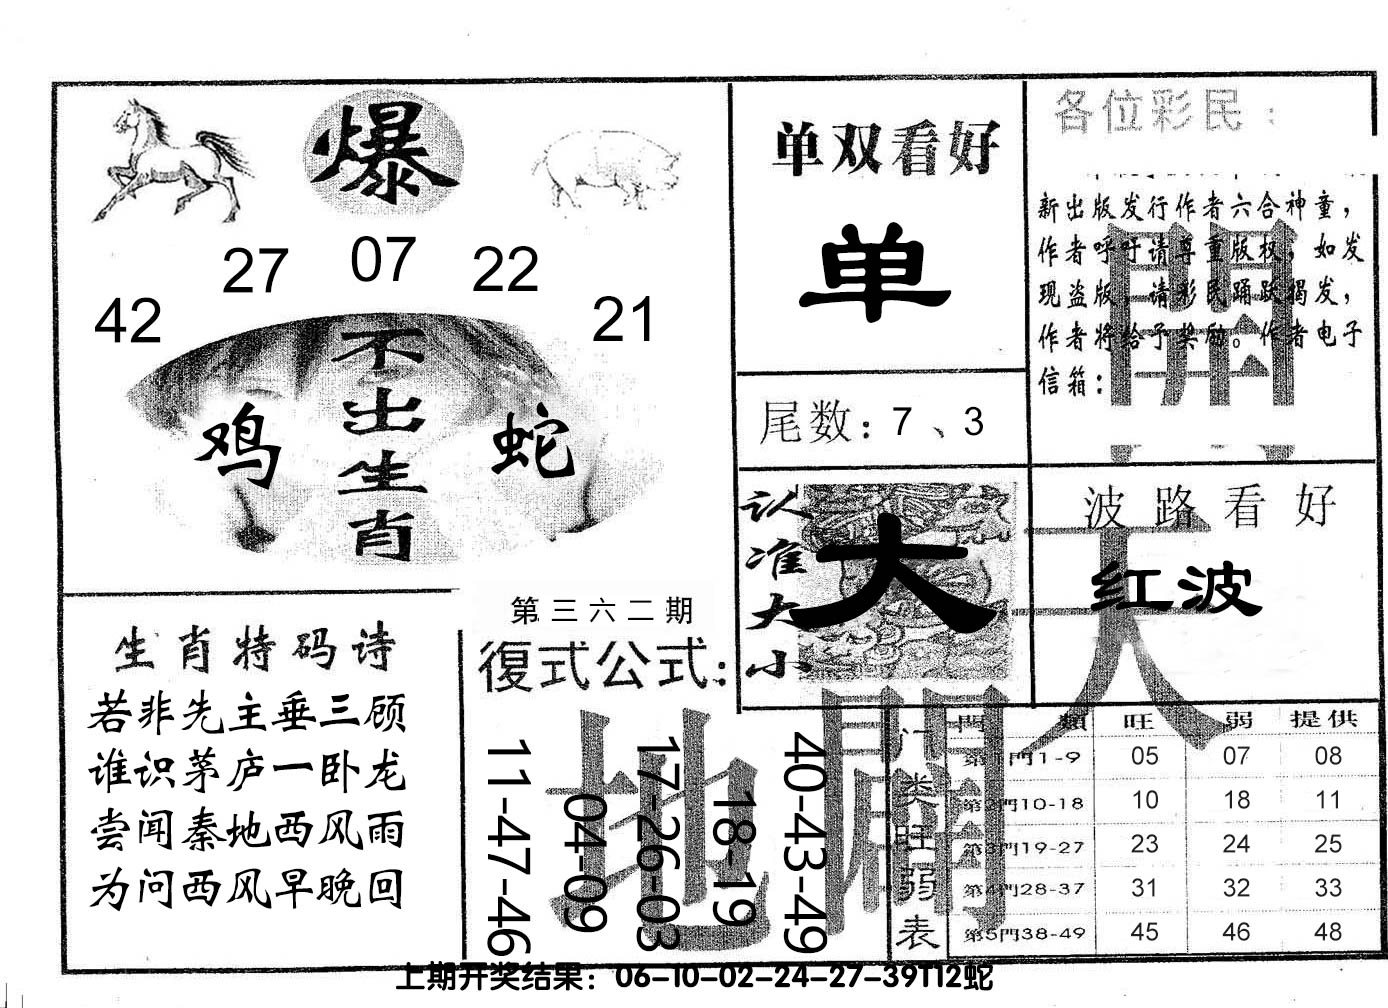 爆
42 27 07 22 21
不出生肖
鸡 蛇
单双看好
单
尾数：7、3
各位彩民：
新出版发行作者六合神童，
作者呼吁请尊重版权，如发
现盗版，请彩民踊跃揭发，
作者将给予奖励。作者电子
信箱：
開
认准大小
大
波路看好
红波
天
生肖特码诗
若非先主垂三顾
谁识茅庐一卧龙
尝闻秦地西风雨
为问西风早晚回
第三六二期
復式公式：
11-47-46
04-09
17-26-03
18-19
40-43-49
地
门类旺弱表
門類 旺 弱 提供
第1門1-9 05 07 08
第2門10-18 10 18 11
第3門19-27 23 24 25
第4門28-37 31 32 33
第5門38-49 45 46 48
上期开奖结果：06-10-02-24-27-39T12蛇